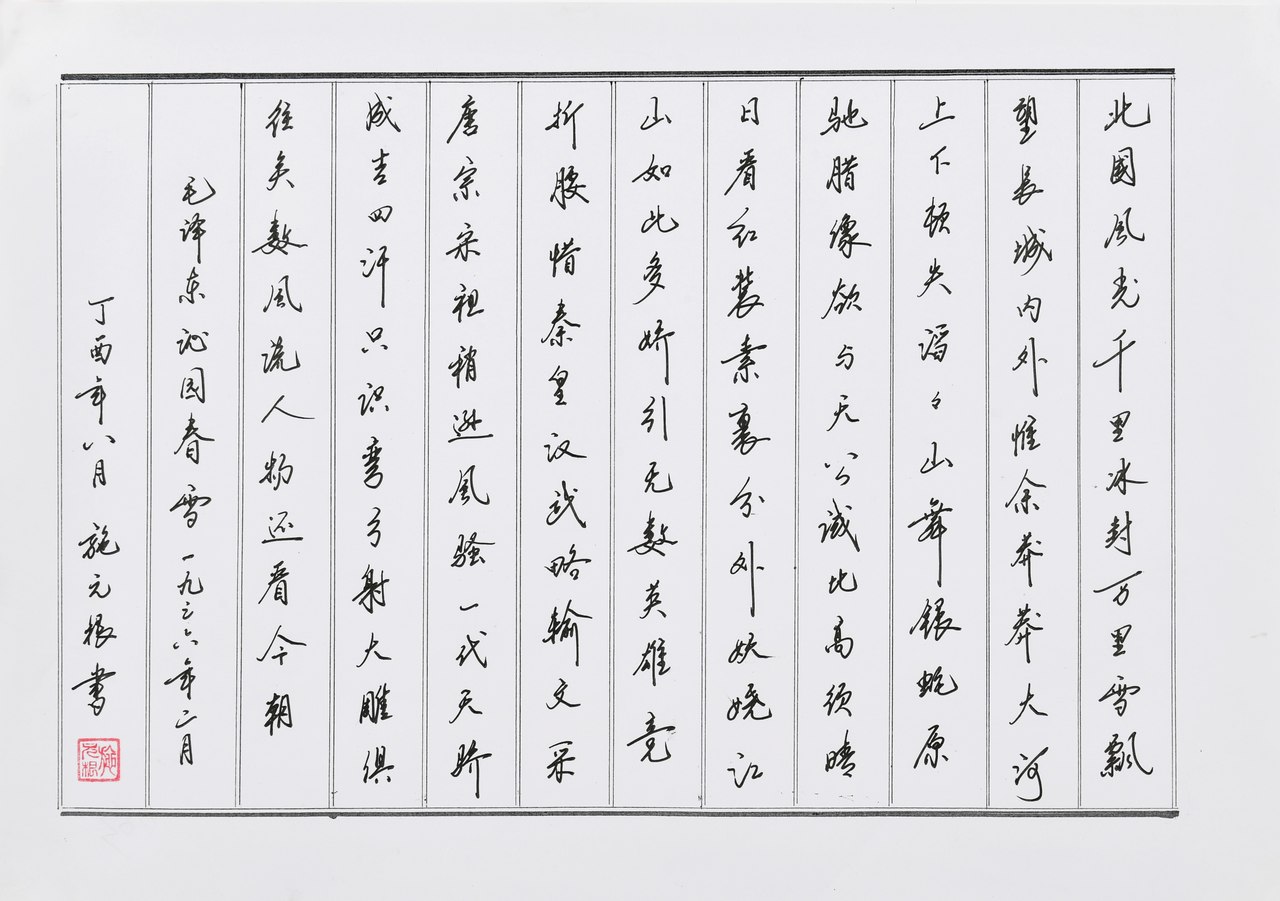 北國風光千里冰封万里雪飘
望長城内外惟余莽莽大河
上下顿失滔々山舞银蛇原
驰腊像欲与天公试比高须晴
日看红装素裹分外妖娆江
山如此多娇引无数英雄竞
折腰惜秦皇汉武略输文采
唐宗宋祖稍逊風骚一代天骄
成吉四汗只识弯弓射大雕俱
往矣数風流人物还看今朝
毛泽东沁园春雪一九三六年二月
丁酉年八月 施元根书
施元根